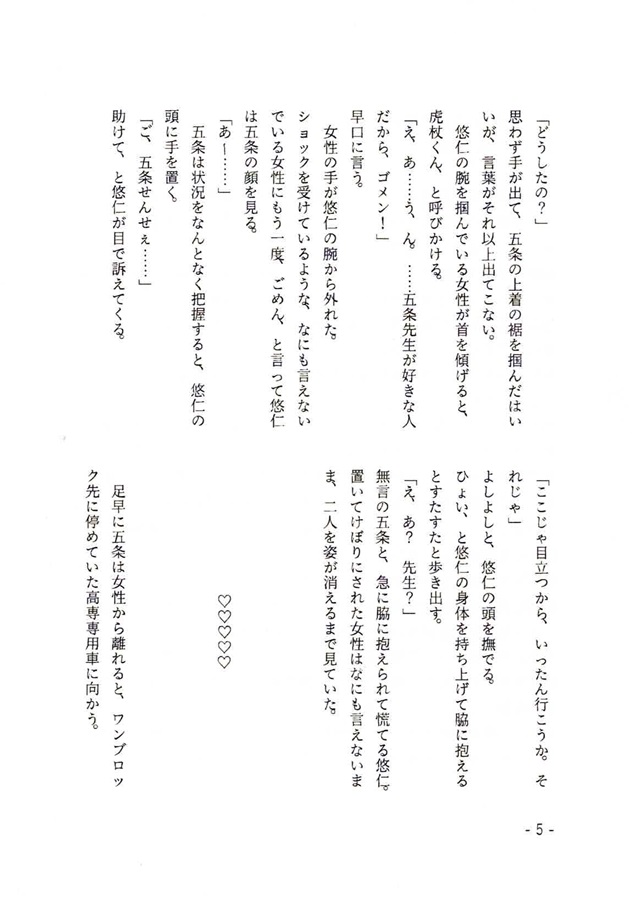 「どうしたの？」
思わず手が出て、五条の上着の裾を掴んだはい
いが、言葉がそれ以上出てこない。
悠仁の腕を掴んでいる女性が首を傾げると、
虎杖くん、と呼びかける。
「え、あ……う、ん。……五条先生が好きな人
だから、ゴメン！」
早口に言う。
女性の手が悠仁の腕から外れた。
ショックを受けているような、なにも言えない
でいる女性にもう一度、ごめん、と言って悠仁
は五条の顔を見る。
「あ～……」
五条は状況をなんとなく把握すると、悠仁の
頭に手を置く。
「ご、五条せんせぇ……」
助けて、と悠仁が目で訴えてくる。
「ここじゃ目立つから、いったん行こうか。そ
れじゃ」
よしよしと、悠仁の頭を撫でる。
ひょい、と悠仁の身体を持ち上げて脇に抱える
とすたすたと歩き出す。
「え、あ？　先生？」
無言の五条と、急に脇に抱えられて慌てる悠仁。
置いてけぼりにされた女性はなにも言えないま
ま、二人を姿が消えるまで見ていた。
♡♡♡♡♡
足早に五条は女性から離れると、ワンブロッ
ク先に停めていた高専専用車に向かう。
- 5 -